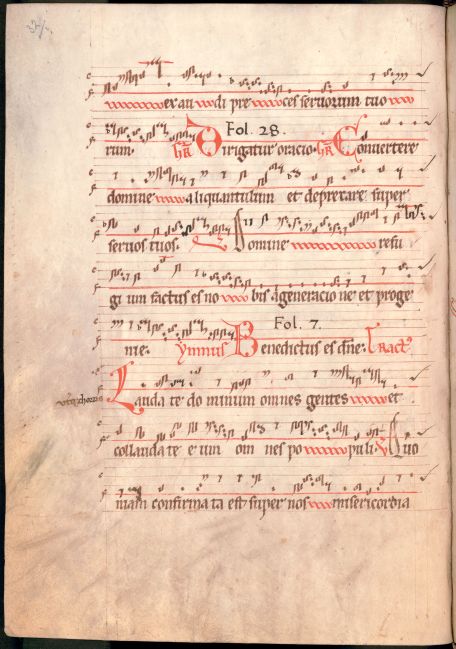 exau di pre ces servorum tuo
Fol. 28.
rum. Dirigatur oracio. Convertere
domine aliquantulum et deprecare super
servos tuos. Domine refu
gi um factus es no bis a generacio ne et proge
Fol. 7.
nie. Ymnus Benedictus es dne. Tract
Lauda te do minum omnes gentes et
collauda te e um om nes po puli. Quo
niam confirma ta est super nos misericordia